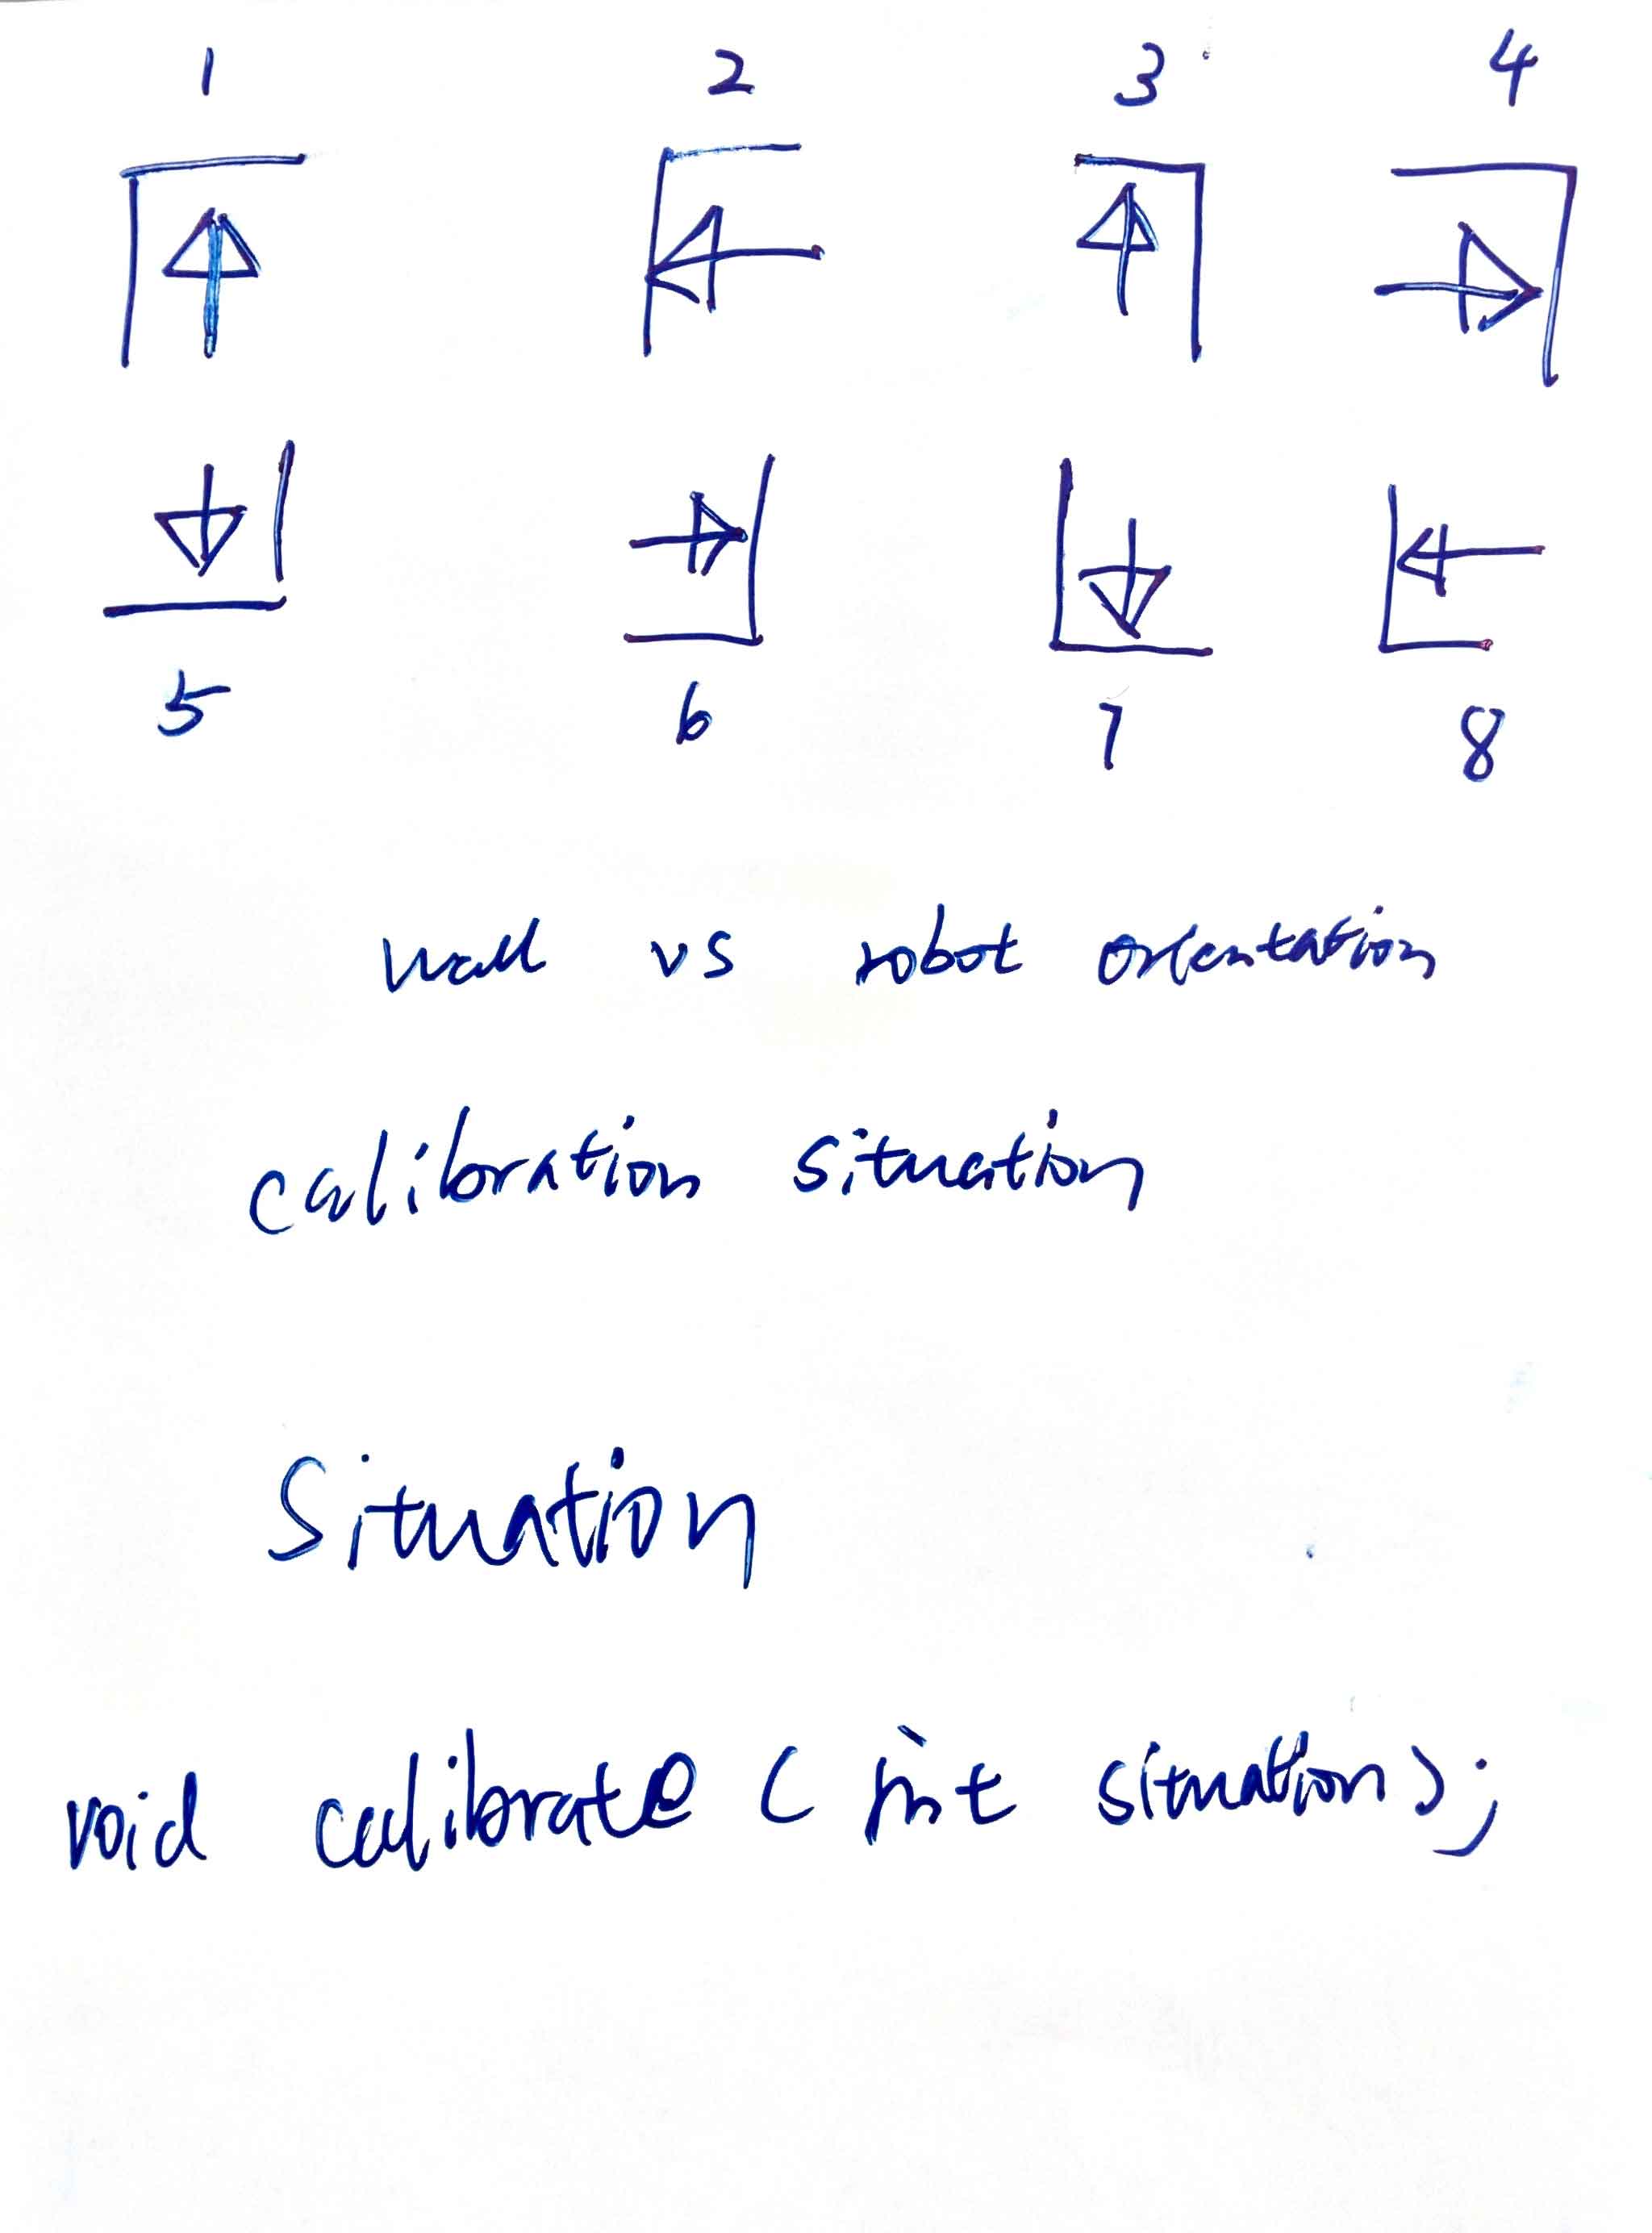 1 2 3 4
5 6 7 8
wall vs robot orientation
calibration situation
Situation
void calibrate ( int situation ) ;